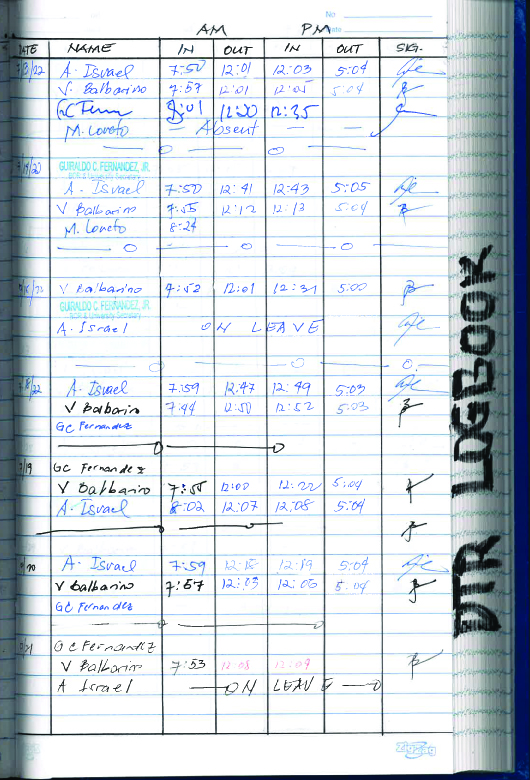 No
AM PM Date
DATE NAME IN OUT IN OUT SIG.
A. Israel 7:50 12:01 12:03 5:04
V. Balbarino 7:57 12:01 12:05 5:04
8:01 12:20 12:35
M. Loreto — Absent — —
GUIRALDO C. FERNANDEZ, JR.
A. Israel 7:50 12:41 12:43 5:05
V Balbarino 7:55 12:12 12:13 5:04
M. Loreto 8:24
V Balbarino 7:52 12:01 12:31 5:00
GUIRALDO C. FERNANDEZ, JR.
A. Israel ON LEAVE
A. Israel 7:59 12:47 12:49 5:03
V Balbarino 7:44 12:50 12:52 5:03
GC Fernandez
7/19 GC Fernandez
V Balbarino 7:55 12:00 12:22 5:04
A. Israel 8:02 12:07 12:08 5:04
A. Israel 7:59 12:18 12:19 5:04
V Balbarino 7:57 12:03 12:06 5:04
GC Fernandez
GC Fernandez
V Balbarino 7:53 12:08 12:09
A Israel ON LEAVE
zigzag
DTR LOGBOOK